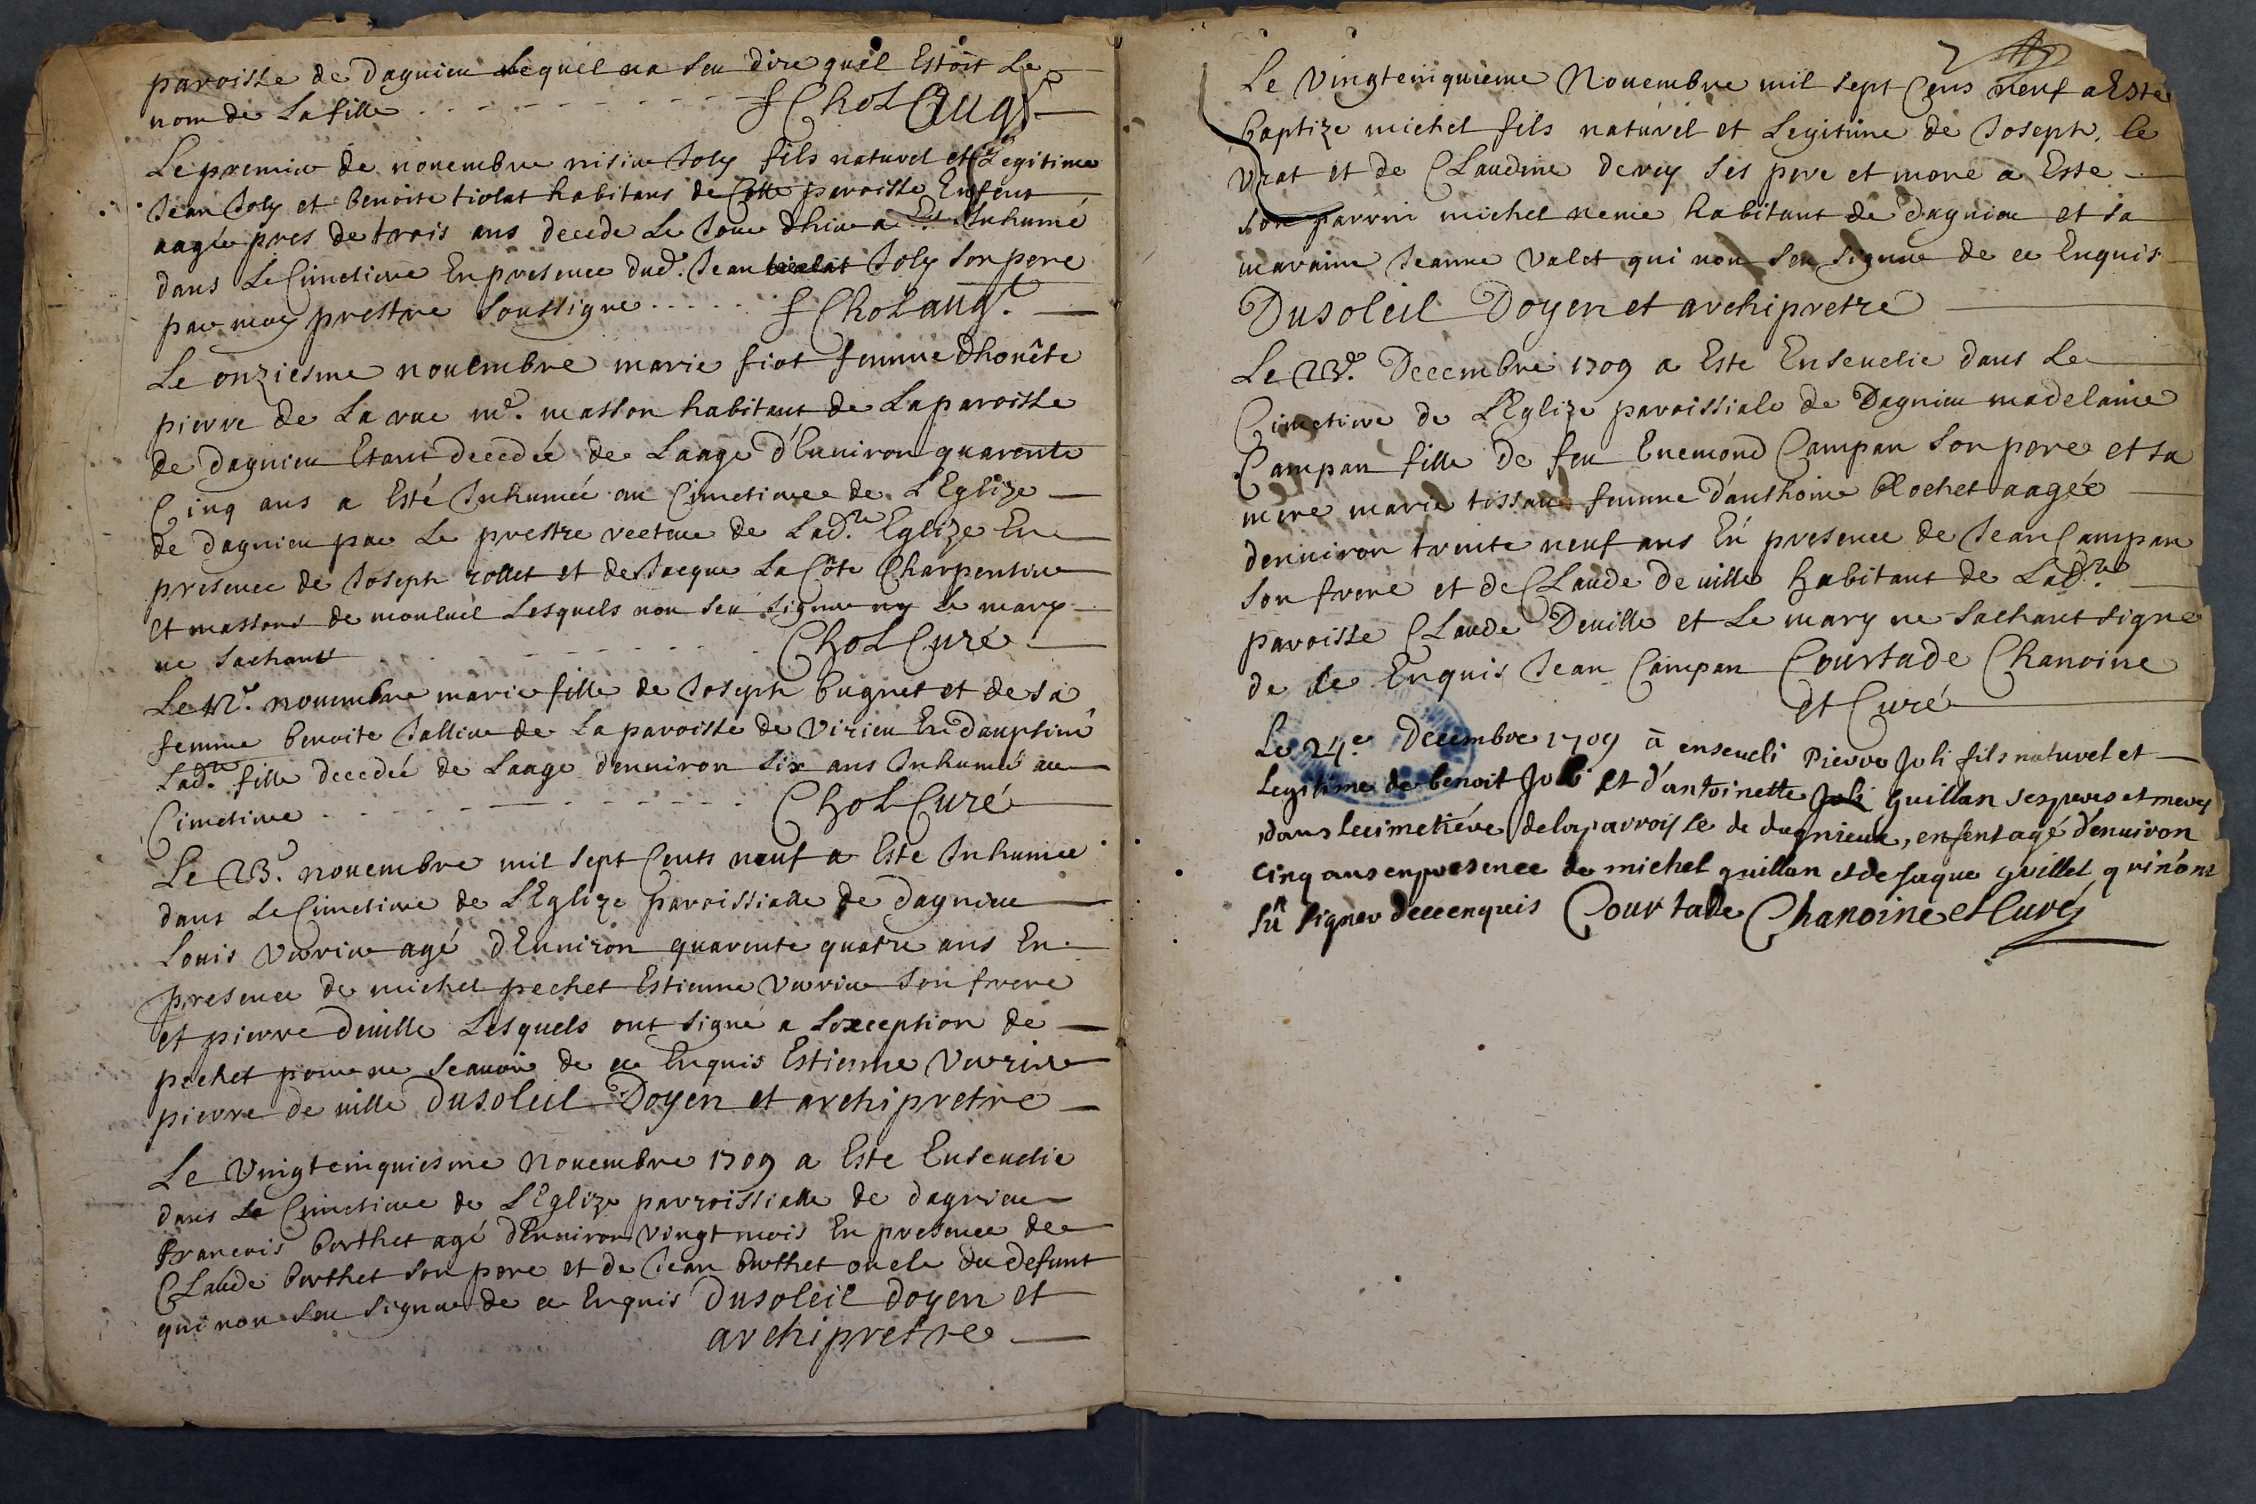 paroisse de dagnieu lequel na seu dire quel Estoit le
nom de la fille f Chol Aug.
Le premier de nouembre Joly fils naturel et Legitime
Jean Joly et benoite tiolat habitans de Cette paroisse Enfent
aagée pres de trois ans decede Le Jour dhier a Esté Inhumé
dans Le Cimetiere En presence dud. Jean Joly son pere
par moy prestre soussigne f Chol aug.
Le onziesme nouembre marie fiot femme dhonête
pierre de La rue me. masson habitant de La paroisse
de dagnieu Etant decedée de Laage d'Enuiron quarente
Cinq ans a Esté Inhumée au Cimetiere de L'Eglize
de dagnieu par Le prestre recteur de Lad.te Eglize En
presence de Joseph rollet et de Jacque La Côte Charpentier
et massons de monluel Lesquels non seu signer ny Le mary
ne sachant Chol Curé
Le 12e. nouembre marie fille de Joseph bugnet et de sa
femme benoite Jallier de La paroisse de Virieu En dauphiné
Lad.te fille decedée de Laage denuiron six ans Inhumée au
Cimetiere Chol Curé
Le 23e. nouembre mil sept Cents neuf a Este Inhumee
dans Le Cimetiere de L'Eglize paroissialle de dagnieu
Louis Verrier agé d'Enuiron quarente quatre ans En
presence de michel pechet Estienne Verrier son frere
et pierre deuille Lesquels ont signé a Lexception de
pechet pour ne scauoir de ce Enquis Estienne Verrier
pierre de uille Dusoleil Doyen et archipretre
Le Vingtcinquiesme Nouembre 1709 a Este Enseuelie
dans Le Cimetiere de L'Eglize parroissialle de dagnieu
François berthet agé d'Enuiron Vingt mois En presence de
Claude berthet son pere et de Jean berthet oncle du defunt
qui non seu signer de ce Enquis Dusoleil doyen et
archipretre
Le Vingtcinquieme Nouembre mil sept Cens neuf a Esté
baptize michel fils naturel et Legitime de Joseph le
Vrat et de Claudine derey ses pere et mere a Este
son parrin michel nemé habitant de dagnieu et sa
maraine Jeanne Valet qui non seu signer de ce Enquis
Dusoleil Doyen et archipretre
Le 23e. Decembre 1709 a Este Enseuelie dans Le
Cimetiere de L'Eglize paroissiale de Dagnieu madelaine
Campan fille de feu Enemond Campan son pere et sa
mere marie tissau femme d'anthoine blochet aagée
denuiron trente neuf ans En presence de Jean Campan
son frere et de Claude de uille habitant de Lad.te
paroisse Claude Deuille et Le mary ne sachant signe
de ce Enquis Jean Campan Courtade Chanoine
et Curé
Le 24.e Decembre 1709 a enseueli Pierre Joli fils naturel et
Legitime de benoit Joli et d'antoinette Joli guillan ses peres et merey
dans lecimetiére delaparroisse de dagnieux, enfent agé d'enuiron
cinq ans enpresence de michel guillan et de Jaque guillet qui n'ont
su signer deceenquis Courtade Chanoine et Curé